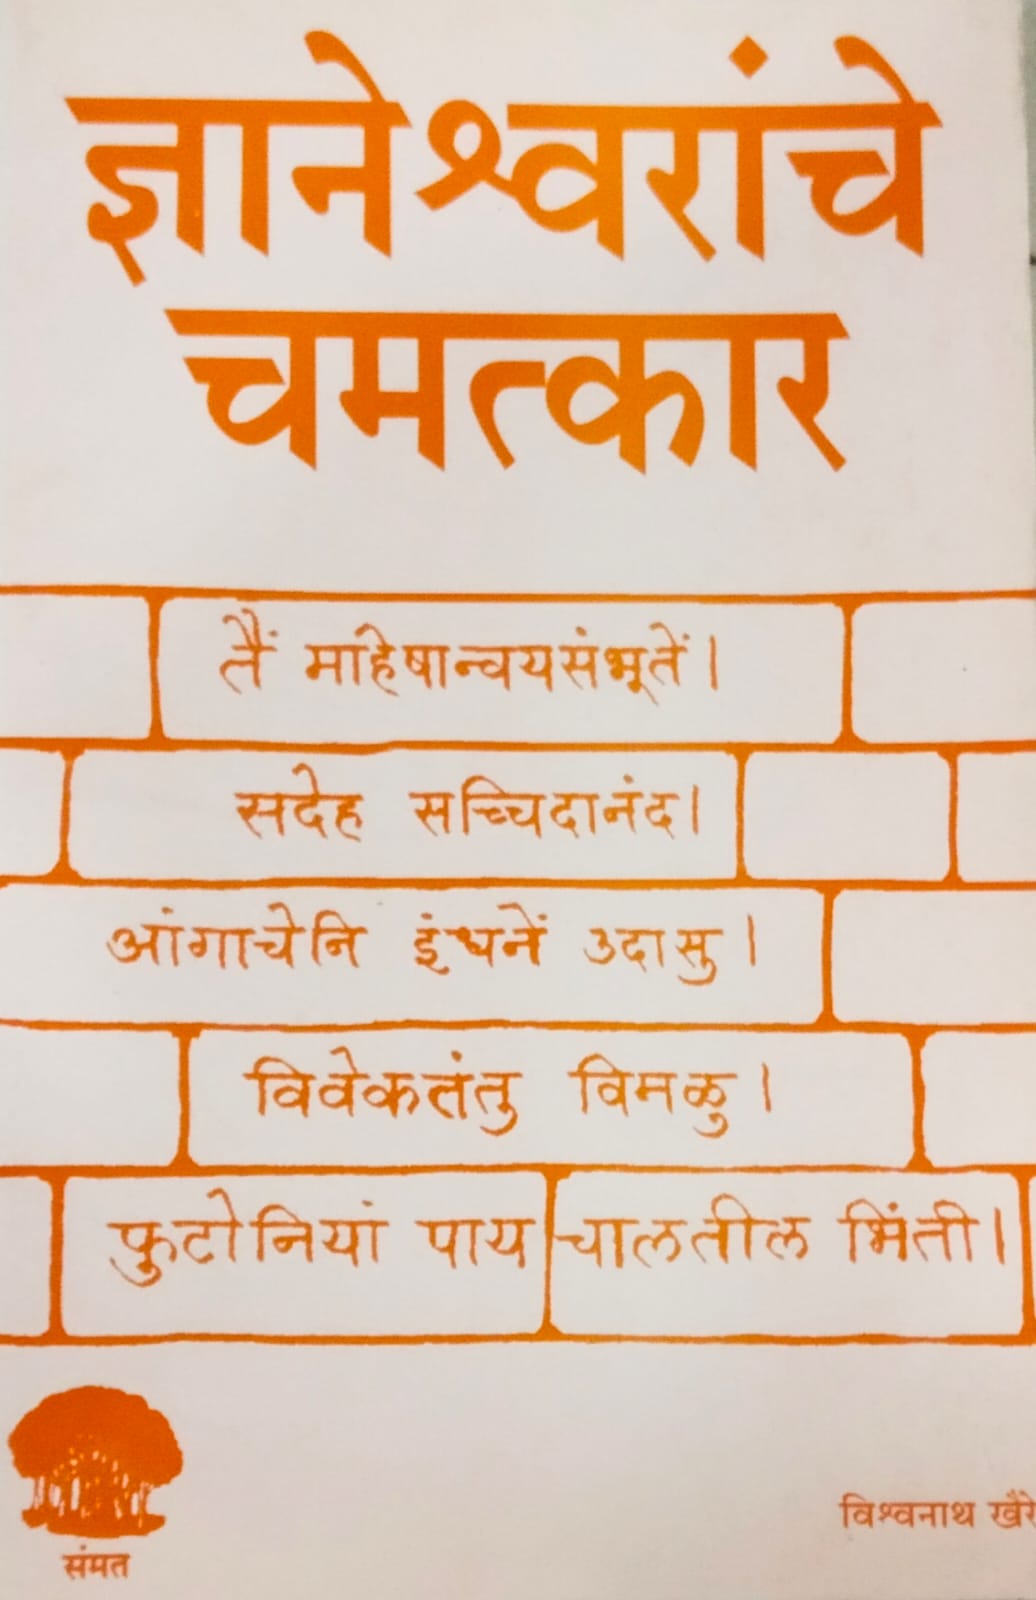 ज्ञानेश्वरांचे
चमत्कार
तैं माहेषान्वयसंभूतें।
सदेह सच्चिदानंद।
आंगाचेनि इंधनें उदासु।
विवेकतंतु विमळु।
फुटोनियां पाय चालतील भिंती।
विश्वनाथ खैरे
संमत